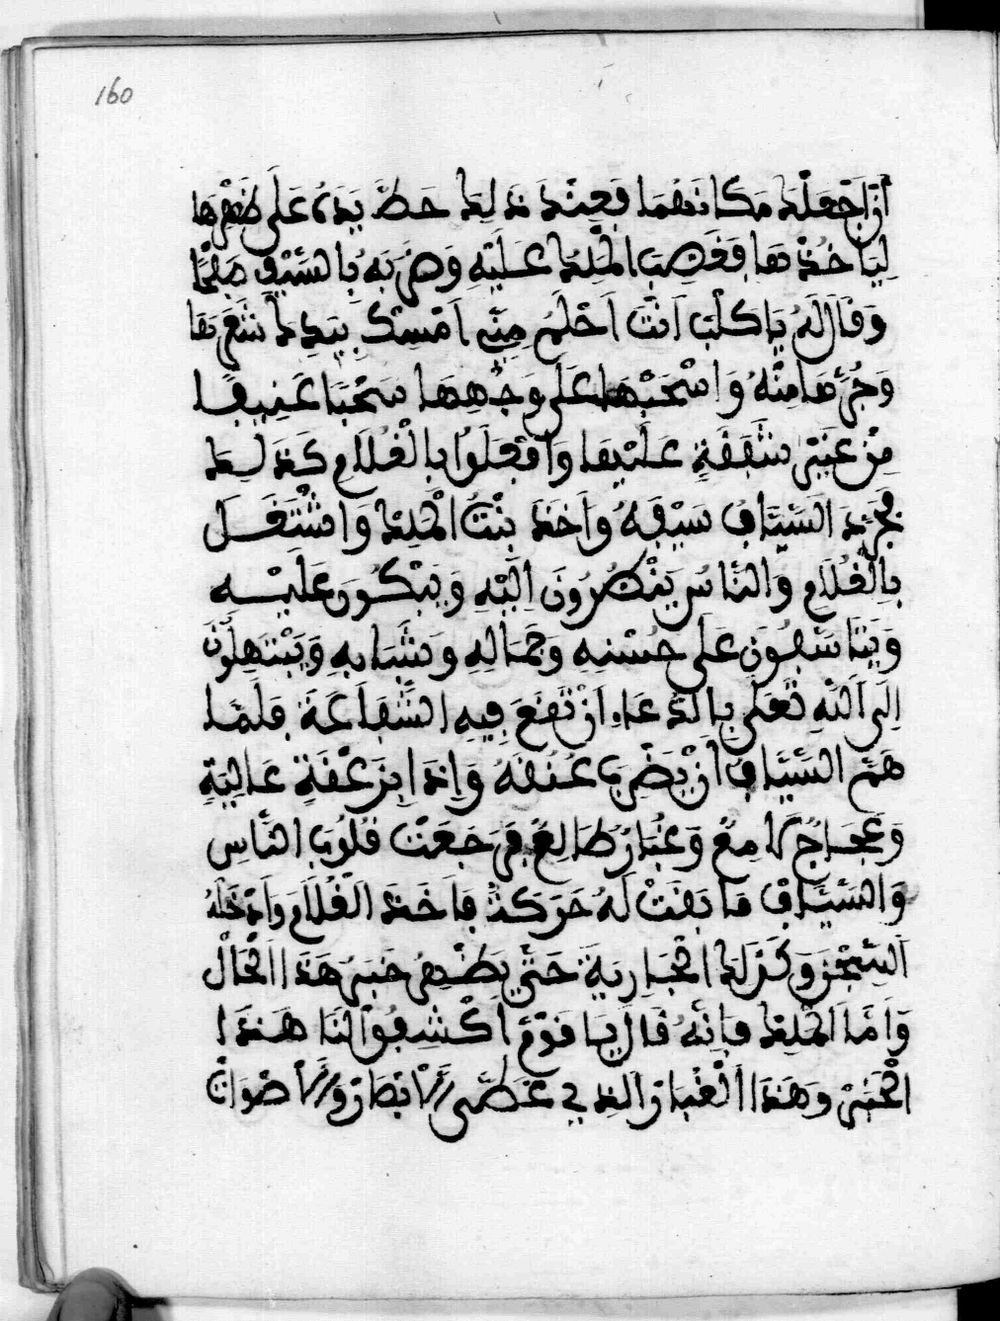 160
أن اجعلك مكانهما فعند ذلك حط يده على ظهرها
لياخذها فغصب الملك عليه وضربه بالسيف صفحا
وقال له يا كلب انت احلم مني امسك بيدك شعرها
وجرها منه واسحبها على وجهها سحبا عنيفا
من غير شفقة عليها وافعلوا بالغلام كذلك
فجرد السياف سيفه واخذ بنت الملك واشتغل
بالغلام والناس ينظرون اليه ويبكون عليه
ويتاسفون على حسنه وجماله وشبابه ويبتهلون
الى الله تعلى بالدعاء ان تقع فيه الشفاعة فلما
هم السياف ان يضرب عنقه واذا بزعقة عالية
وعجاج لامع وغبار طالع فرجعت قلوب الناس
والسياف ما بقت له حركة فاخذ الغلام وادخله
السجن وكذلك الجارية حتى يظهر خبر هذا الحال
واما الملك فانه قال يا قوم اكشفوا لنا هذا
الخبر وهذا الغبار الذي غطى الابصار والاصوات